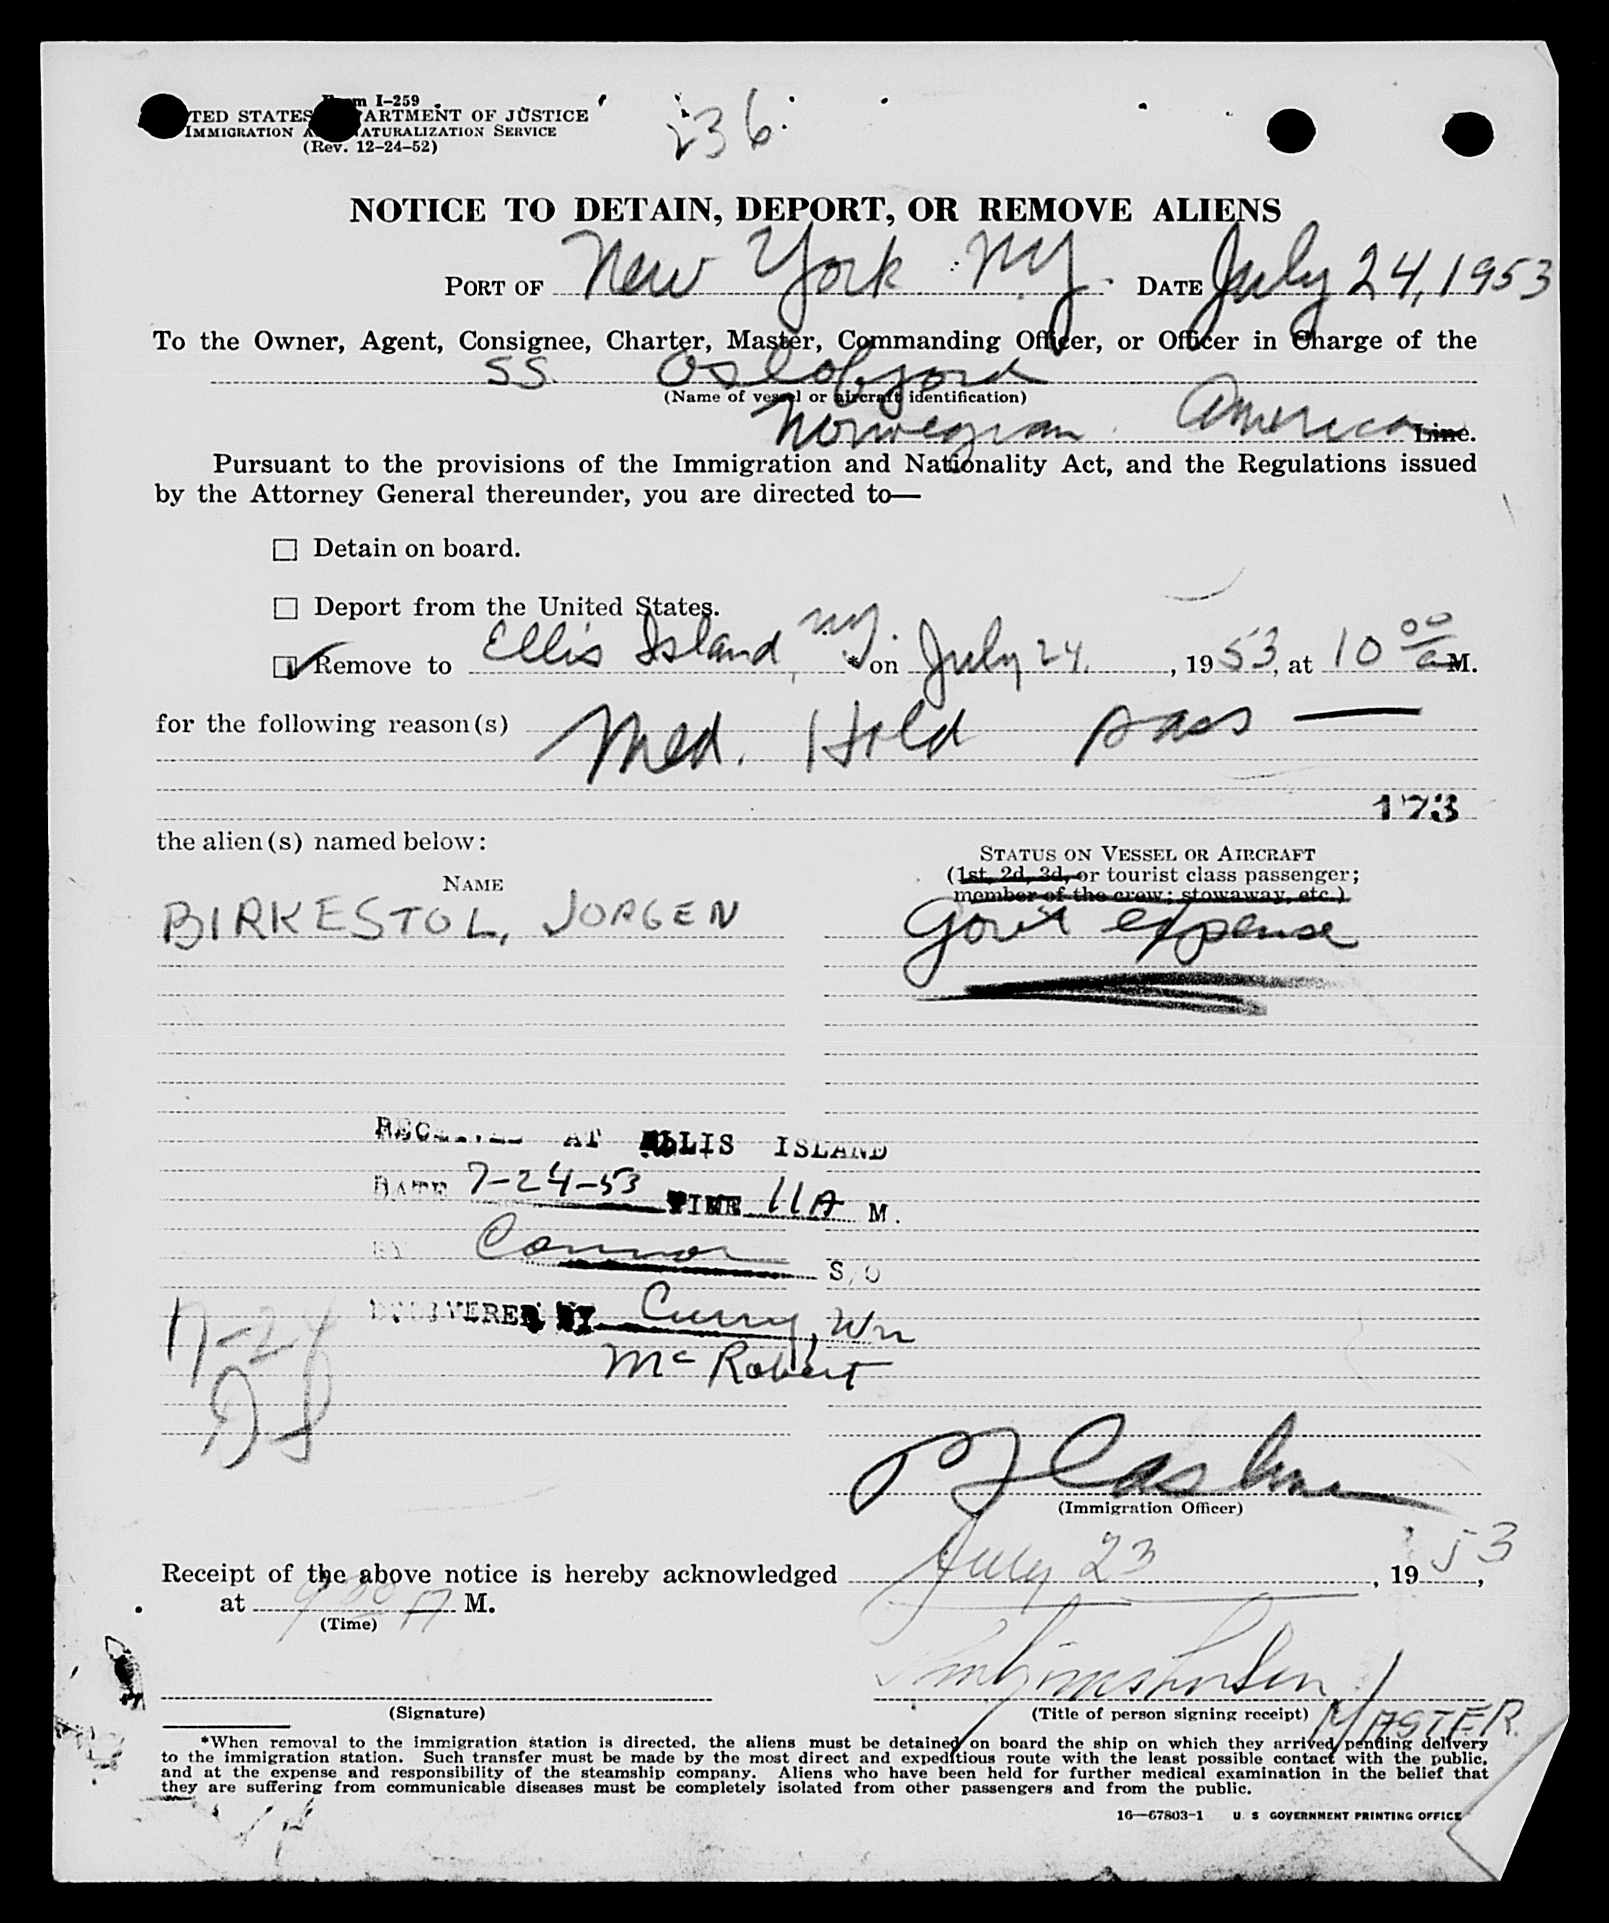 Form I-259
UNITED STATES DEPARTMENT OF JUSTICE
IMMIGRATION AND NATURALIZATION SERVICE
(Rev. 12-24-52)
236
NOTICE TO DETAIN, DEPORT, OR REMOVE ALIENS
PORT OF New York NY. DATE July 24, 1953
To the Owner, Agent, Consignee, Charter, Master, Commanding Officer, or Officer in Charge of the
SS Oslofjord
(Name of vessel or aircraft identification)
Norwegian America Line.
Pursuant to the provisions of the Immigration and Nationality Act, and the Regulations issued
by the Attorney General thereunder, you are directed to—
☐ Detain on board.
☐ Deport from the United States.
☑ Remove to Ellis Island, NY. * on July 24, 1953, at 10 00 a M.
for the following reason(s) Med. Hold pass —
173
the alien(s) named below:
STATUS ON VESSEL OR AIRCRAFT
(1st, 2d, 3d, or tourist class passenger;
member of the crew; stowaway, etc.)
NAME
BIRKESTOL, JORGEN Gov't expense
RECEIVED AT ELLIS ISLAND
DATE 7-24-53 TIME 11A M.
BY Connor S/O
DELIVERED BY Curry, Wm
McRobert
7-24
(Immigration Officer)
Receipt of the above notice is hereby acknowledged July 23, 1953,
at 9 00 A M.
(Time)
(Signature)
(Title of person signing receipt) MASTER.
*When removal to the immigration station is directed, the aliens must be detained on board the ship on which they arrived pending delivery
to the immigration station. Such transfer must be made by the most direct and expeditious route with the least possible contact with the public,
and at the expense and responsibility of the steamship company. Aliens who have been held for further medical examination in the belief that
they are suffering from communicable diseases must be completely isolated from other passengers and from the public.
16—67803-1 U. S GOVERNMENT PRINTING OFFICE